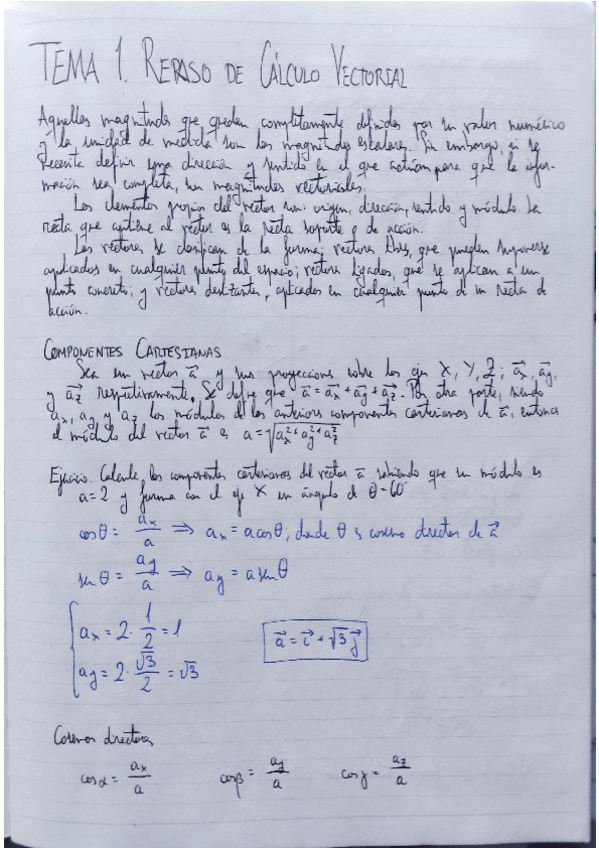 TEMA 1. REPASO DE CÁLCULO VECTORIAL
Aquellas magnitudes que quedan completamente definidas por un valor numérico
y la unidad de medida son las magnitudes escalares. Sin embargo, si se
necesita definir una dirección y sentido en el que actúan para que la infor-
mación sea completa, son magnitudes vectoriales.
Los elementos propios del vector son: origen, dirección, sentido y módulo. La
recta que contiene al vector es la recta soporte o de acción.
Los vectores se clasifican de la forma; vectores libres, que pueden suponerse
aplicados en cualquier punto del espacio; vectores ligados, que se aplican a un
punto concreto; y vectores deslizantes, aplicados en cualquier punto de su recta de
acción.
COMPONENTES CARTESIANAS
Sea un vector a⃗ y sus proyecciones sobre los ejes X, Y, Z; a⃗x, a⃗y,
y a⃗z respectivamente. Se define que a⃗ = a⃗x + a⃗y + a⃗z. Por otra parte, siendo
ax, ay y az los módulos de las anteriores componentes cartesianas de a⃗, entonces
el módulo del vector a⃗ es a = √(ax² + ay² + az²)
Ejercicio. Calcule las componentes cartesianas del vector a⃗ sabiendo que su módulo es
a = 2 y forma con el eje X un ángulo de θ = 60°
cosθ = ax/a ⟹ ax = a cosθ; donde θ es coseno director de a⃗
senθ = ay/a ⟹ ay = a senθ
{ ax = 2 · 1/2 = 1
ay = 2 · √3/2 = √3
a⃗ = i⃗ + √3 j⃗
Cosenos directores
cosα = ax/a cosβ = ay/a cosγ = az/a